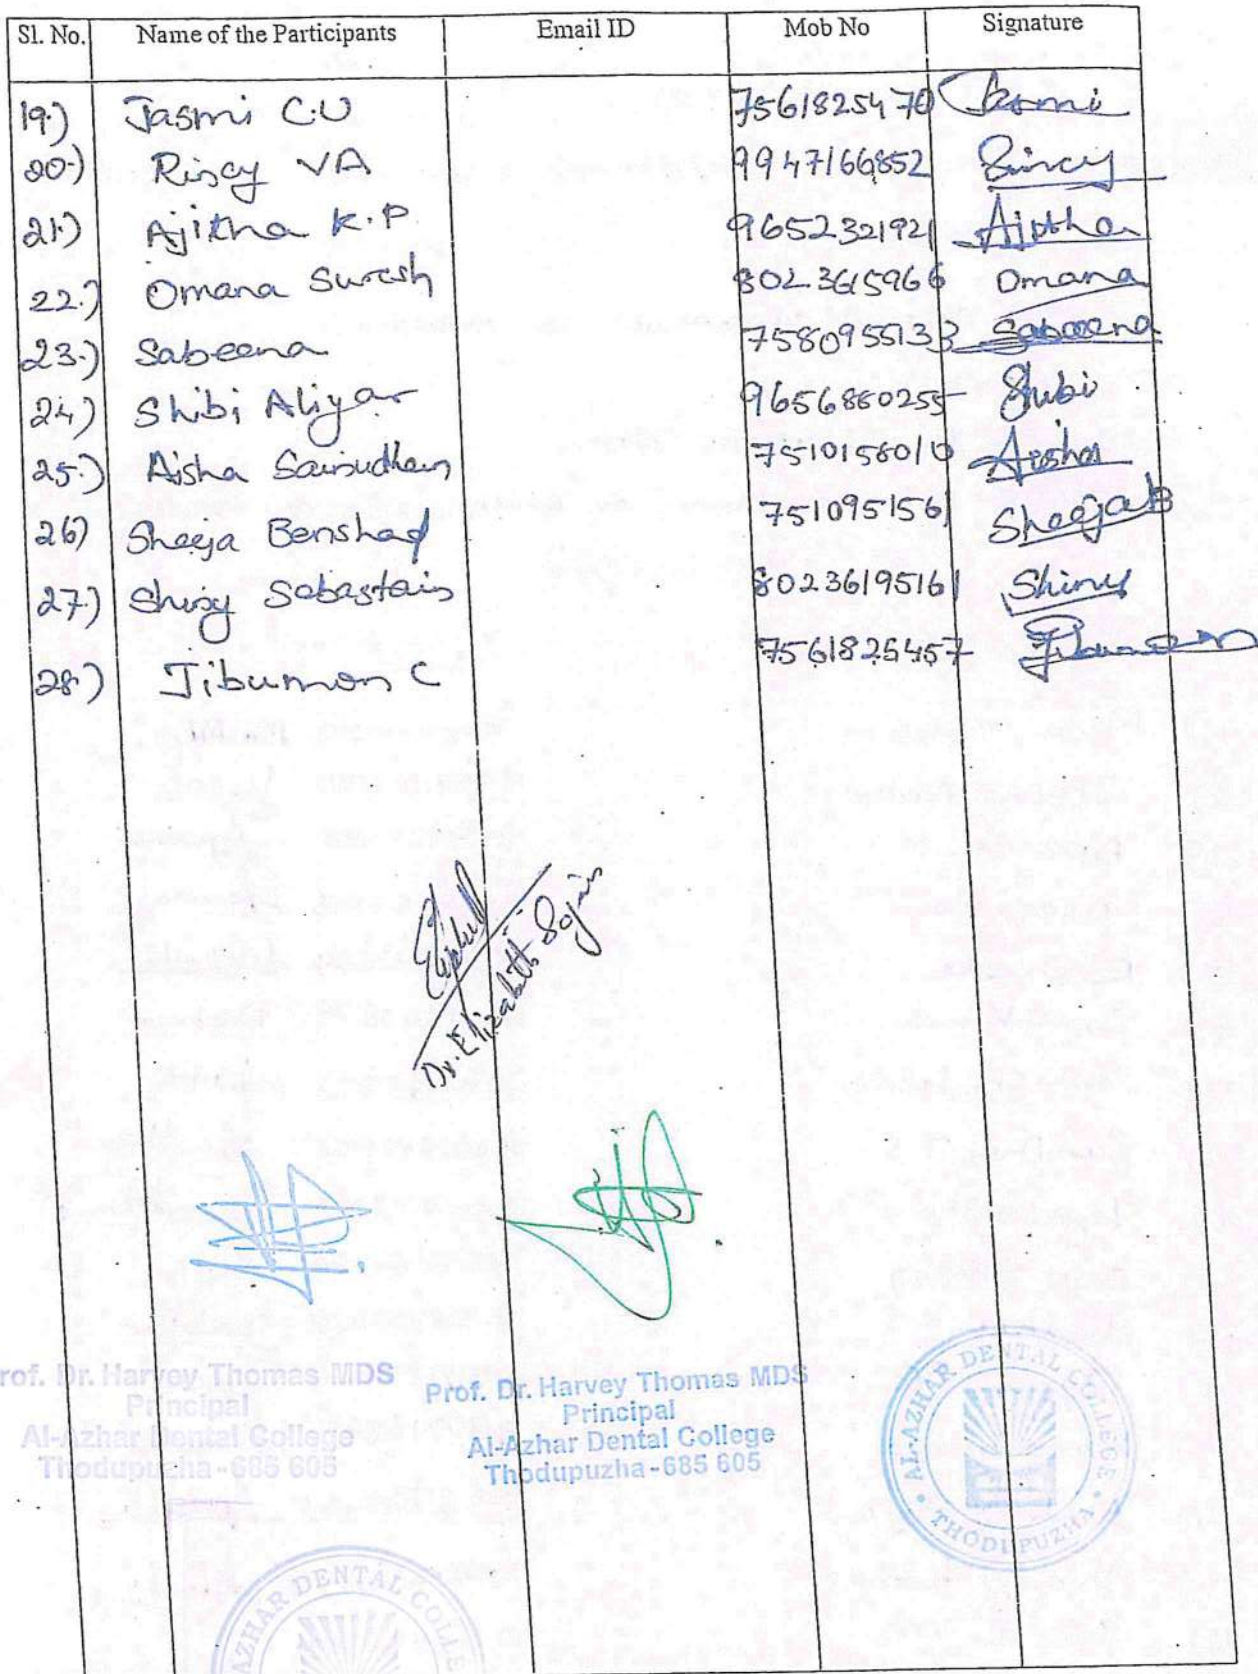 Sl. No. Name of the Participants Email ID Mob No Signature
19.) Jasmi C.U 7561825470 Jasmi
20.) Rincy VA 9947166852 Rincy
21.) Ajitha K.P 9652321921 Ajitha
22.) Omana Suresh 8023615966 Omana
23.) Sabeena 7580955133 Sabeena
24.) Shibi Aliyar 9656880255 Shibi
25.) Aisha Sainudheen 7510158010 Aisha
26) Sheeja Benshad 751095156 SheejaB
27.) Shiny Sebastain 8023619516 Shiny
28.) Jibumon C 7561825457 Jibumon
Dr. Elizabeth
Prof. Dr. Harvey Thomas MDS
Principal
Al-Azhar Dental College
Thodupuzha-685 605
Prof. Dr. Harvey Thomas MDS
Principal
Al-Azhar Dental College
Thodupuzha-685 605
AL-AZHAR DENTAL COLLEGE • THODUPUZHA •
AZHAR DENTAL COLLE